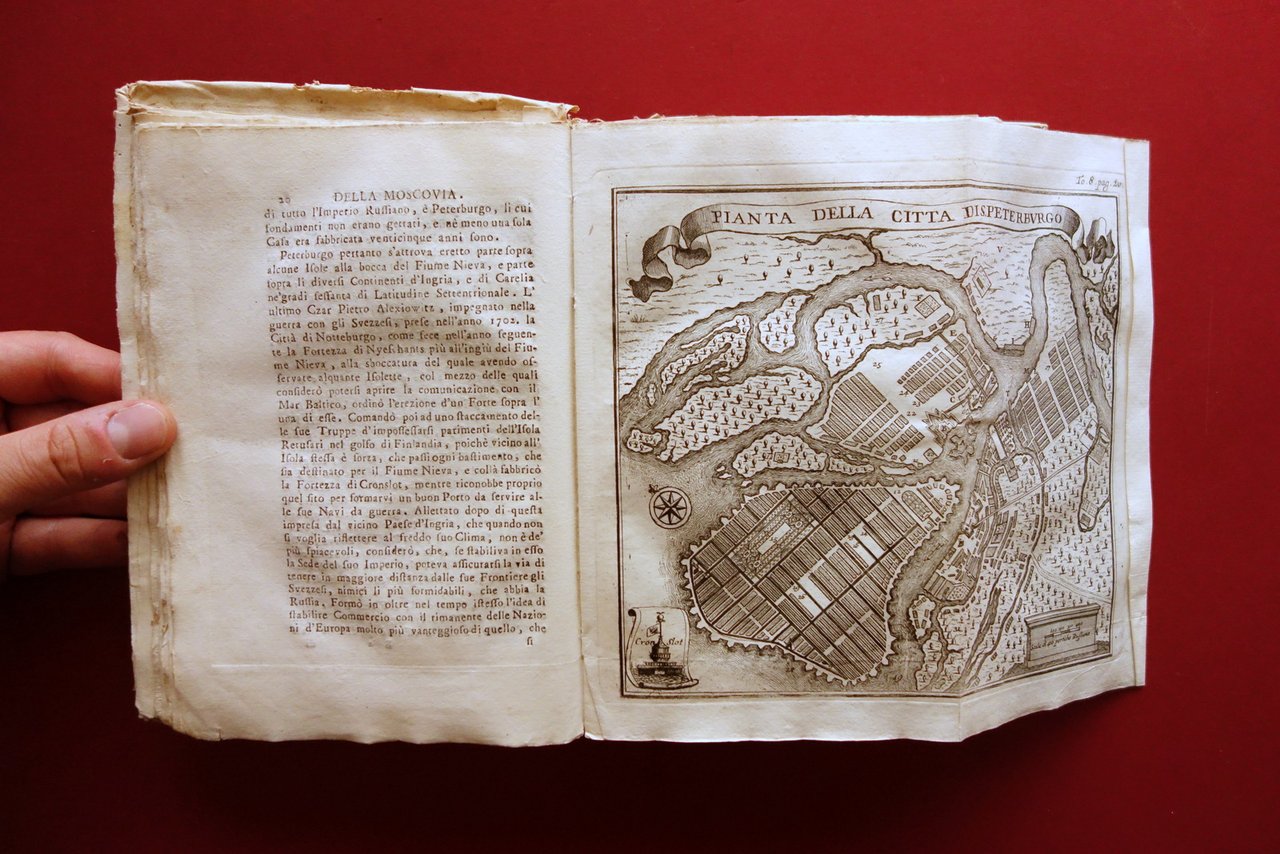 20 DELLA MOSCOVIA.
di tutto l'Imperio Russiano, è Peterburgo, li cui
fondamenti non erano gettati, e nè meno una sola
Casa era fabbricata venticinque anni sono.
Peterburgo pertanto s'attrova eretto parte sopra
alcune Isole alla bocca del Fiume Nieva, e parte
sopra li diversi Continenti d'Ingria, e di Carelia
ne'gradi sessanta di Latitudine Settentrionale. L'
ultimo Czar Pietro Alexiowitz, impegnato nella
guerra con gli Svezzesi, prese nell'anno 1702. la
Città di Notteburgo, come fece nell'anno seguen-
te la Fortezza di Nyeshants più all'ingiù del Fiu-
me Nieva, alla sboccatura del quale avendo os-
servate alquante Isolette, col mezzo delle quali
considerò potersi aprire la comunicazione con il
Mar Baltico, ordinò l'erezione d'un Forte sopra l'
una di esse. Comandò poi ad uno staccamento del-
le sue Truppe d'impossessarsi parimenti dell'Isola
Retusari nel golfo di Finlandia, poichè vicino all'
Isola stessa è forza, che passi ogni bastimento, che
sia destinato per il Fiume Nieva, e collà fabbricò
la Fortezza di Cronslot, mentre riconobbe proprio
quel sito per formarvi un buon Porto da servire al-
le sue Navi da guerra. Allettato dopo di questa
impresa dal vicino Paese d'Ingria, che quando non
si voglia riflettere al freddo suo Clima, non è de'
più spiacevoli, considerò, che, se stabiliva in esso
la Sede del suo Imperio, poteva assicurarsi la via di
tenere in maggiore distanza dalle sue Frontiere gli
Svezzesi, nimici li più formidabili, che abbia la
Russia. Formò in oltre nel tempo istesso l'idea di
stabilire Commercio con il rimanente delle Nazio-
ni d'Europa molto più vanteggioso di quello, che
si
To 8 pag.
PIANTA DELLA CITTA DI S.PETERBVRGO
V
27
E
H
25
22
Cron Slot